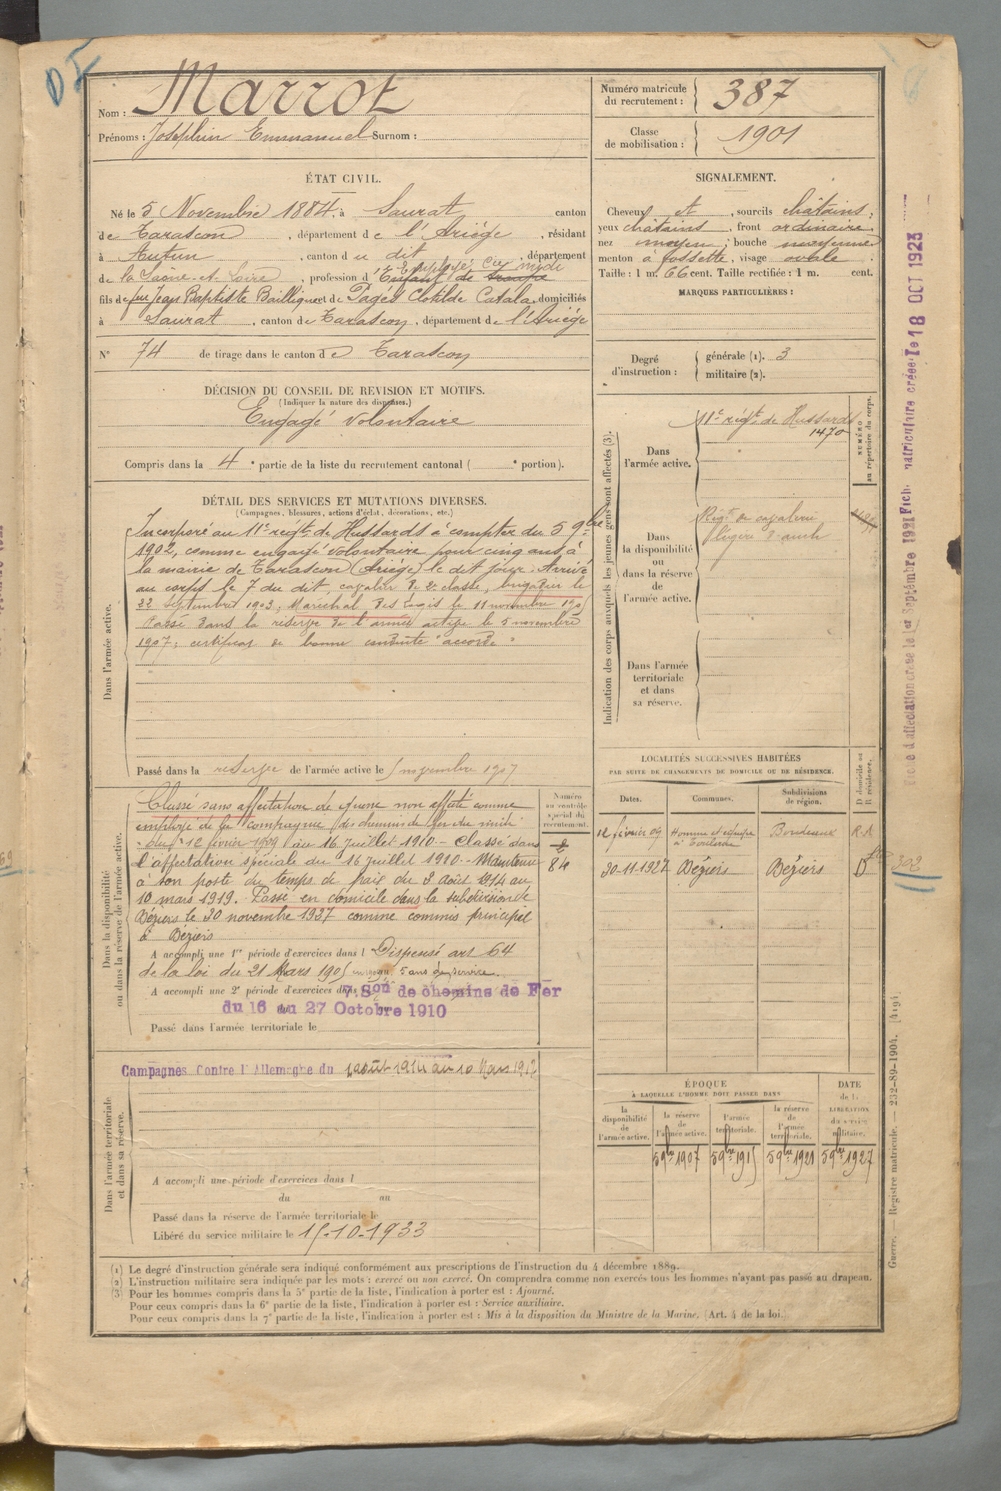 Nom : Marrot
Prénoms : Joséphin Emmanuel Surnom :
Numéro matricule du recrutement : 387
Classe de mobilisation : 1901
ÉTAT CIVIL.
Né le 5 Novembre 1884, à Saurat canton
de Tarascon, département de l'Ariège, résidant
à Autun, canton du dit, département
de la Saône-et-Loire, profession d'Employé Cie midi Enfant de troupe
fils de feu Jean Baptiste Bailliquet de Pagès Clotilde Catala, domiciliés
à Saurat, canton de Tarascon, département de l'Ariège
N° 74 de tirage dans le canton de Tarascon
SIGNALEMENT.
Cheveux et, sourcils châtains;
yeux châtains, front ordinaire,
nez moyen; bouche moyenne
menton à fossette, visage ovale.
Taille : 1 m. 66 cent. Taille rectifiée : 1 m. cent.
MARQUES PARTICULIÈRES :
Degré d'instruction :
générale (1). 3
militaire (2).
DÉCISION DU CONSEIL DE REVISION ET MOTIFS.
(Indiquer la nature des dispenses.)
Engagé volontaire
Compris dans la 4e partie de la liste du recrutement cantonal ( e portion).
DÉTAIL DES SERVICES ET MUTATIONS DIVERSES.
(Campagnes, blessures, actions d'éclat, décorations, etc.)
Dans l'armée active.
Incorporé au 11e régt de Hussards à compter du 5 9bre
1902, comme engagé volontaire pour cinq ans, à
la mairie de Tarascon (Ariège) le dit jour. Arrivé
au corps le 7 du dit, cavalier de 2e classe, brigadier le
22 septembre 1903; Maréchal des Logis le 11 novembre
Passé dans la réserve de l'armée active le 5 novembre
1907; certificat de bonne conduite "accordé"
Passé dans la réserve de l'armée active le 5 novembre 1907
Indication des corps auxquels les jeunes gens sont affectés (3).
NUMÉRO au répertoire du corps.
Dans l'armée active.
11e régt de Hussards
1470
Dans la disponibilité ou dans la réserve de l'armée active.
Régt de cavalerie
légère
Dans l'armée territoriale et dans sa réserve.
LOCALITÉS SUCCESSIVES HABITÉES
PAR SUITE DE CHANGEMENTS DE DOMICILE OU DE RÉSIDENCE.
Dates. Communes. Subdivisions de région. D domicile ou R résidence.
12 février 09 Homme et équipe à Toulouse Bordeaux R.A
30-11-1927 Béziers Béziers D
202
Dans la disponibilité ou dans la réserve de l'armée active.
Numéro au contrôle spécial du recrutement.
84
Classé sans affectation de guerre non affecté comme
employé de la compagnie des chemins de fer du midi
du 12 février 1909 au 16 juillet 1910 - Classé dans
l'affectation spéciale du 16 juillet 1910 - Maintenu
à son poste du temps de paix du 2 Août 1914 au
10 mars 1919. Passé en domicile dans la subdivision de
Béziers le 30 novembre 1927 comme commis principal
à Béziers
A accompli une 1re période d'exercices dans l Dispensé art 64
de la loi du 21 Mars 1905 5 ans de service.
A accompli une 2e période d'exercices dans 7. Son de chemins de Fer
du 16 au 27 Octobre 1910
Passé dans l'armée territoriale le
Dans l'armée territoriale et dans sa réserve.
Campagnes Contre l'Allemagne du 2 août 1914 au 10 Mars 1919
A accompli une période d'exercices dans l
du au
Passé dans la réserve de l'armée territoriale le
Libéré du service militaire le 15-10-1933
ÉPOQUE
À LAQUELLE L'HOMME DOIT PASSER DANS
la disponibilité de l'armée active. la réserve de l'armée active. l'armée territoriale. la réserve de l'armée territoriale. DATE de la LIBÉRATION DU SERVICE militaire.
5 9bre 1907 5 9bre 1915 5 9bre 1921 5 9bre 1927
(1) Le degré d'instruction générale sera indiqué conformément aux prescriptions de l'instruction du 4 décembre 1889.
(2) L'instruction militaire sera indiquée par les mots : exercé ou non exercé. On comprendra comme non exercés tous les hommes n'ayant pas passé au drapeau.
(3) Pour les hommes compris dans la 5e partie de la liste, l'indication à porter est : Ajourné.
Pour ceux compris dans la 6e partie de la liste, l'indication à porter est : Service auxiliaire.
Pour ceux compris dans la 7e partie de la liste, l'indication à porter est : Mis à la disposition du Ministre de la Marine. (Art. 4 de la loi.)
Guerre. — Registre matricule. — 232-89-1904. [4194]
Fiche d'affectation créée le 1er Septembre 1921 Fich. matriculaire créée le 18 OCT 1923